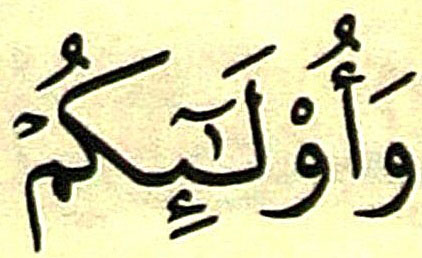 وَأُوْلَـٰٓئِكُمْ